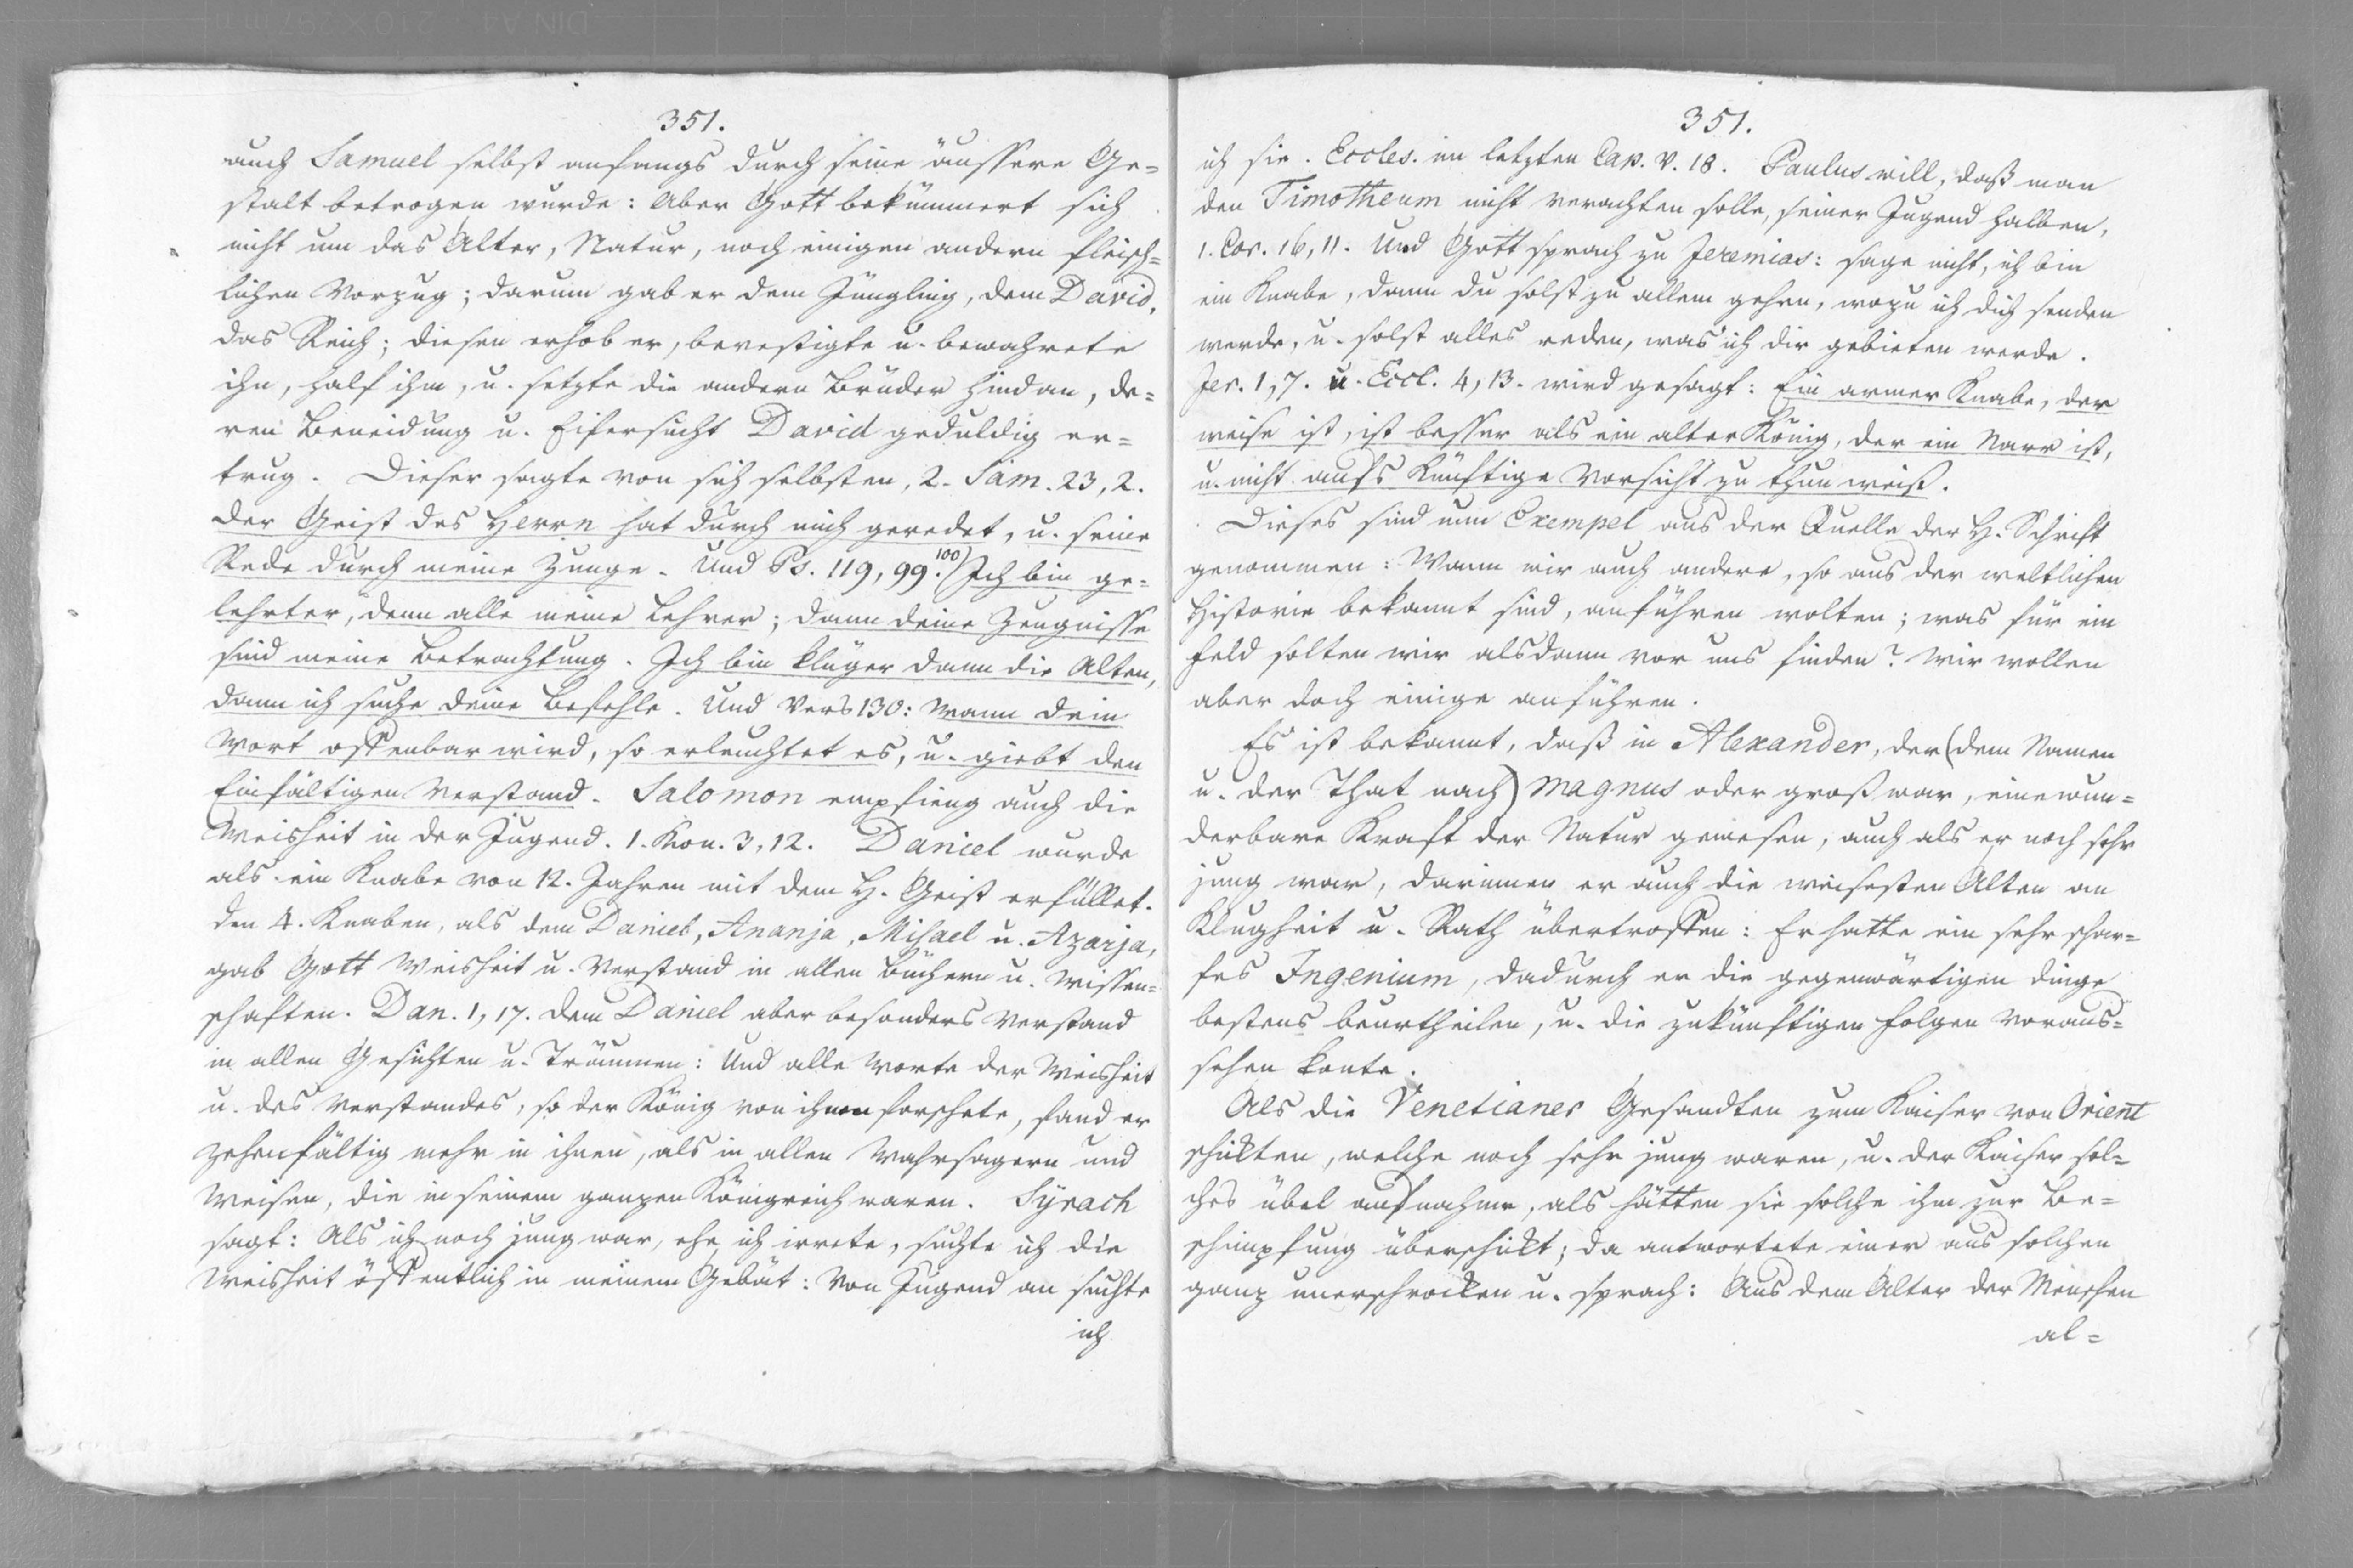 351.
auch Samuel selbst anfangs durch seine äussere Ge=
stalt betrogen wurde: Aber Gott bekümmert sich
nicht um das Alter, Natur, noch einigen andern fleisch=
lichen Vorzug; darum gab er dem Jüngling, dem David,
das Reich; diesen erhob er, bevestigte u. bewahrete
ihn, half ihm, u. setzte die andern Brüder hindan, de=
ren Beneidung u. Eifersucht David geduldig er=
trug. Dieser sagte von sich selbsten, 2. Sam. 23, 2.
Der Geist des Herrn hat durch mich geredet, u. seine
Rede durch meine Zunge. Und Ps. 119, 99. 100) Ich bin ge=
lehrter, denn alle meine Lehrer; dann deine Zeugnisse
sind meine Betrachtung. Ich bin klüger dann die Alten,
dann ich suche deine Befehle. Und Vers 130: Wann dein
Wort offenbar wird, so erleuchtet es, u. giebt den
Einfältigen Verstand. Salomon empfieng auch die
Weisheit in der Jugend. 1. Kön. 3, 12. Daniel wurde
als ein Knabe von 12. Jahren mit dem H. Geist erfüllet.
Den 4. Knaben, als dem Daniel, Ananja, Misael u. Azarja,
gab Gott Weisheit u. Verstand in allen Büchern u. Wissen=
schaften. Dan. 1, 17. dem Daniel aber besonders Verstand
in allen Gesichten u. Träumen: Und alle Worte der Weisheit
u. des Verstandes, so der König von ihnen forschete, fand er
zehenfältig mehr in ihnen, als in allen Wahrsagern und
Weisen, die in seinem ganzen Königreich waren. Syrach
sagt: Als ich noch jung war, ehe ich irrete, suchte ich die
Weisheit öffentlich in meinem Gebät: Von Jugend an suchte
ich
351.
ich sie. Eccles. im letzten Cap. v. 18. Paulus will, daß man
den Timotheum nicht verachten solle, seiner Jugend halben,
1. Cor. 16, 11. Und Gott sprach zu Jeremias: sage nicht, ich bin
ein Knabe, dann du solst zu allem gehen, wozu ich dich senden
werde, u. solst alles reden, was ich dir gebieten werde.
Jer. 1, 7. u. Eccl. 4, 13. wird gesagt: Ein armer Knabe, der
weise ist, ist besser als ein alter König, der ein Narr ist,
u. nicht aufs Künftige Vorsicht zu thun weiß.
Dieses sind nun Exempel aus der Quelle der H. Schrift
genommen: Wann wir auch andere, so aus der weltlichen
Historie bekannt sind, anführen wolten; was für ein
Feld solten wir alsdann vor uns finden? Wir wollen
aber doch einige anführen.
Es ist bekannt, daß in Alexander, der (dem Namen
u. der That nach) Magnus oder groß war, eine wun=
derbare Kraft der Natur gewesen, auch als er noch sehr
jung war, darinnen er auch die weisesten Alten an
Klugheit u. Rath übertroffen: Er hatte ein sehr schar=
fes Ingenium, dadurch er die gegenwärtigen Dinge
bestens beurtheilen, u. die zukünftigen Folgen voraus=
sehen konte.
Als die Venetianer Gesandten zum Kaiser von Orient
schikten, welche noch sehr jung waren, u. der Kaiser sol=
ches übel aufnahme, als hätten sie solche ihm zur Be=
schimpfung überschikt; da antwortete einer aus solchen
ganz unerschrocken u. sprach: Aus dem Alter der Menschen
al=